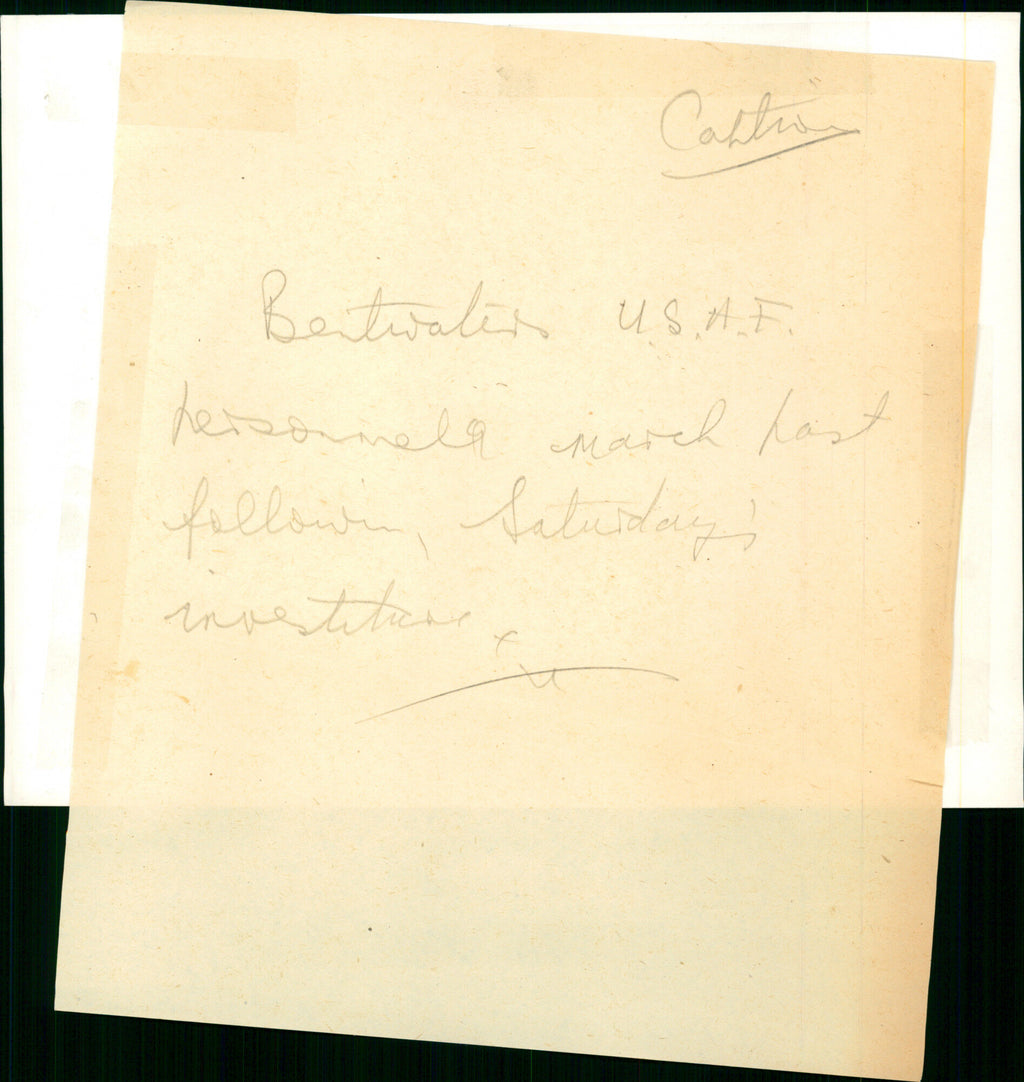 Caption
Bentwaters U.S.A.F.
personnel march past
following Saturday's
investiture.